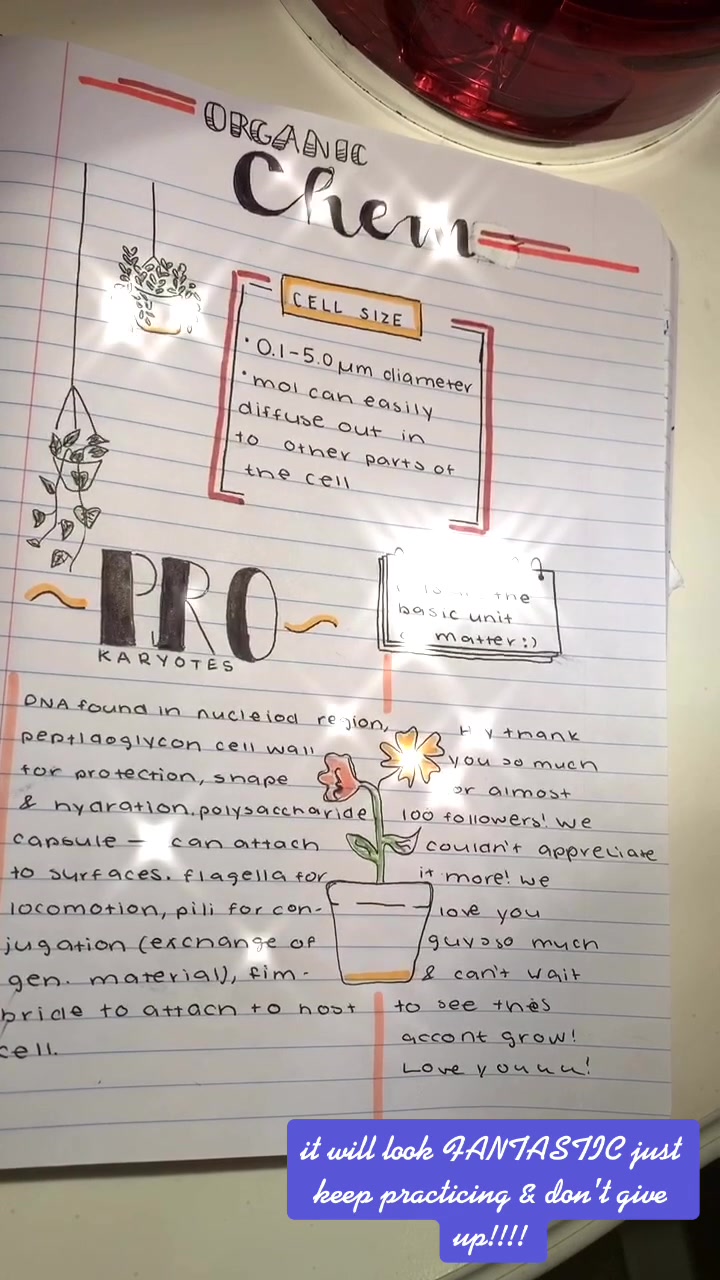 ORGANIC
Chem
CELL SIZE
• 0.1-5.0 µm diameter
• mol can easily
diffuse out in
to other parts of
the cell
the
basic unit
matter:)
~PRO~
KARYOTES
DNA found in nucleiod region,
peptidoglycon cell wall
for protection, shape
& hydration. polysaccharide
capsule — can attach
to surfaces. flagella for
locomotion, pili for con-
jugation (exchange of
gen. material), fim-
bride to attach to host
cell.
thank
you so much
or almost
100 followers! We
couldn't appreciate
it more! we
love you
guys so much
& can't wait
to see thes
accont grow!
Love youuu!
it will look FANTASTIC just
keep practicing & don't give
up!!!!